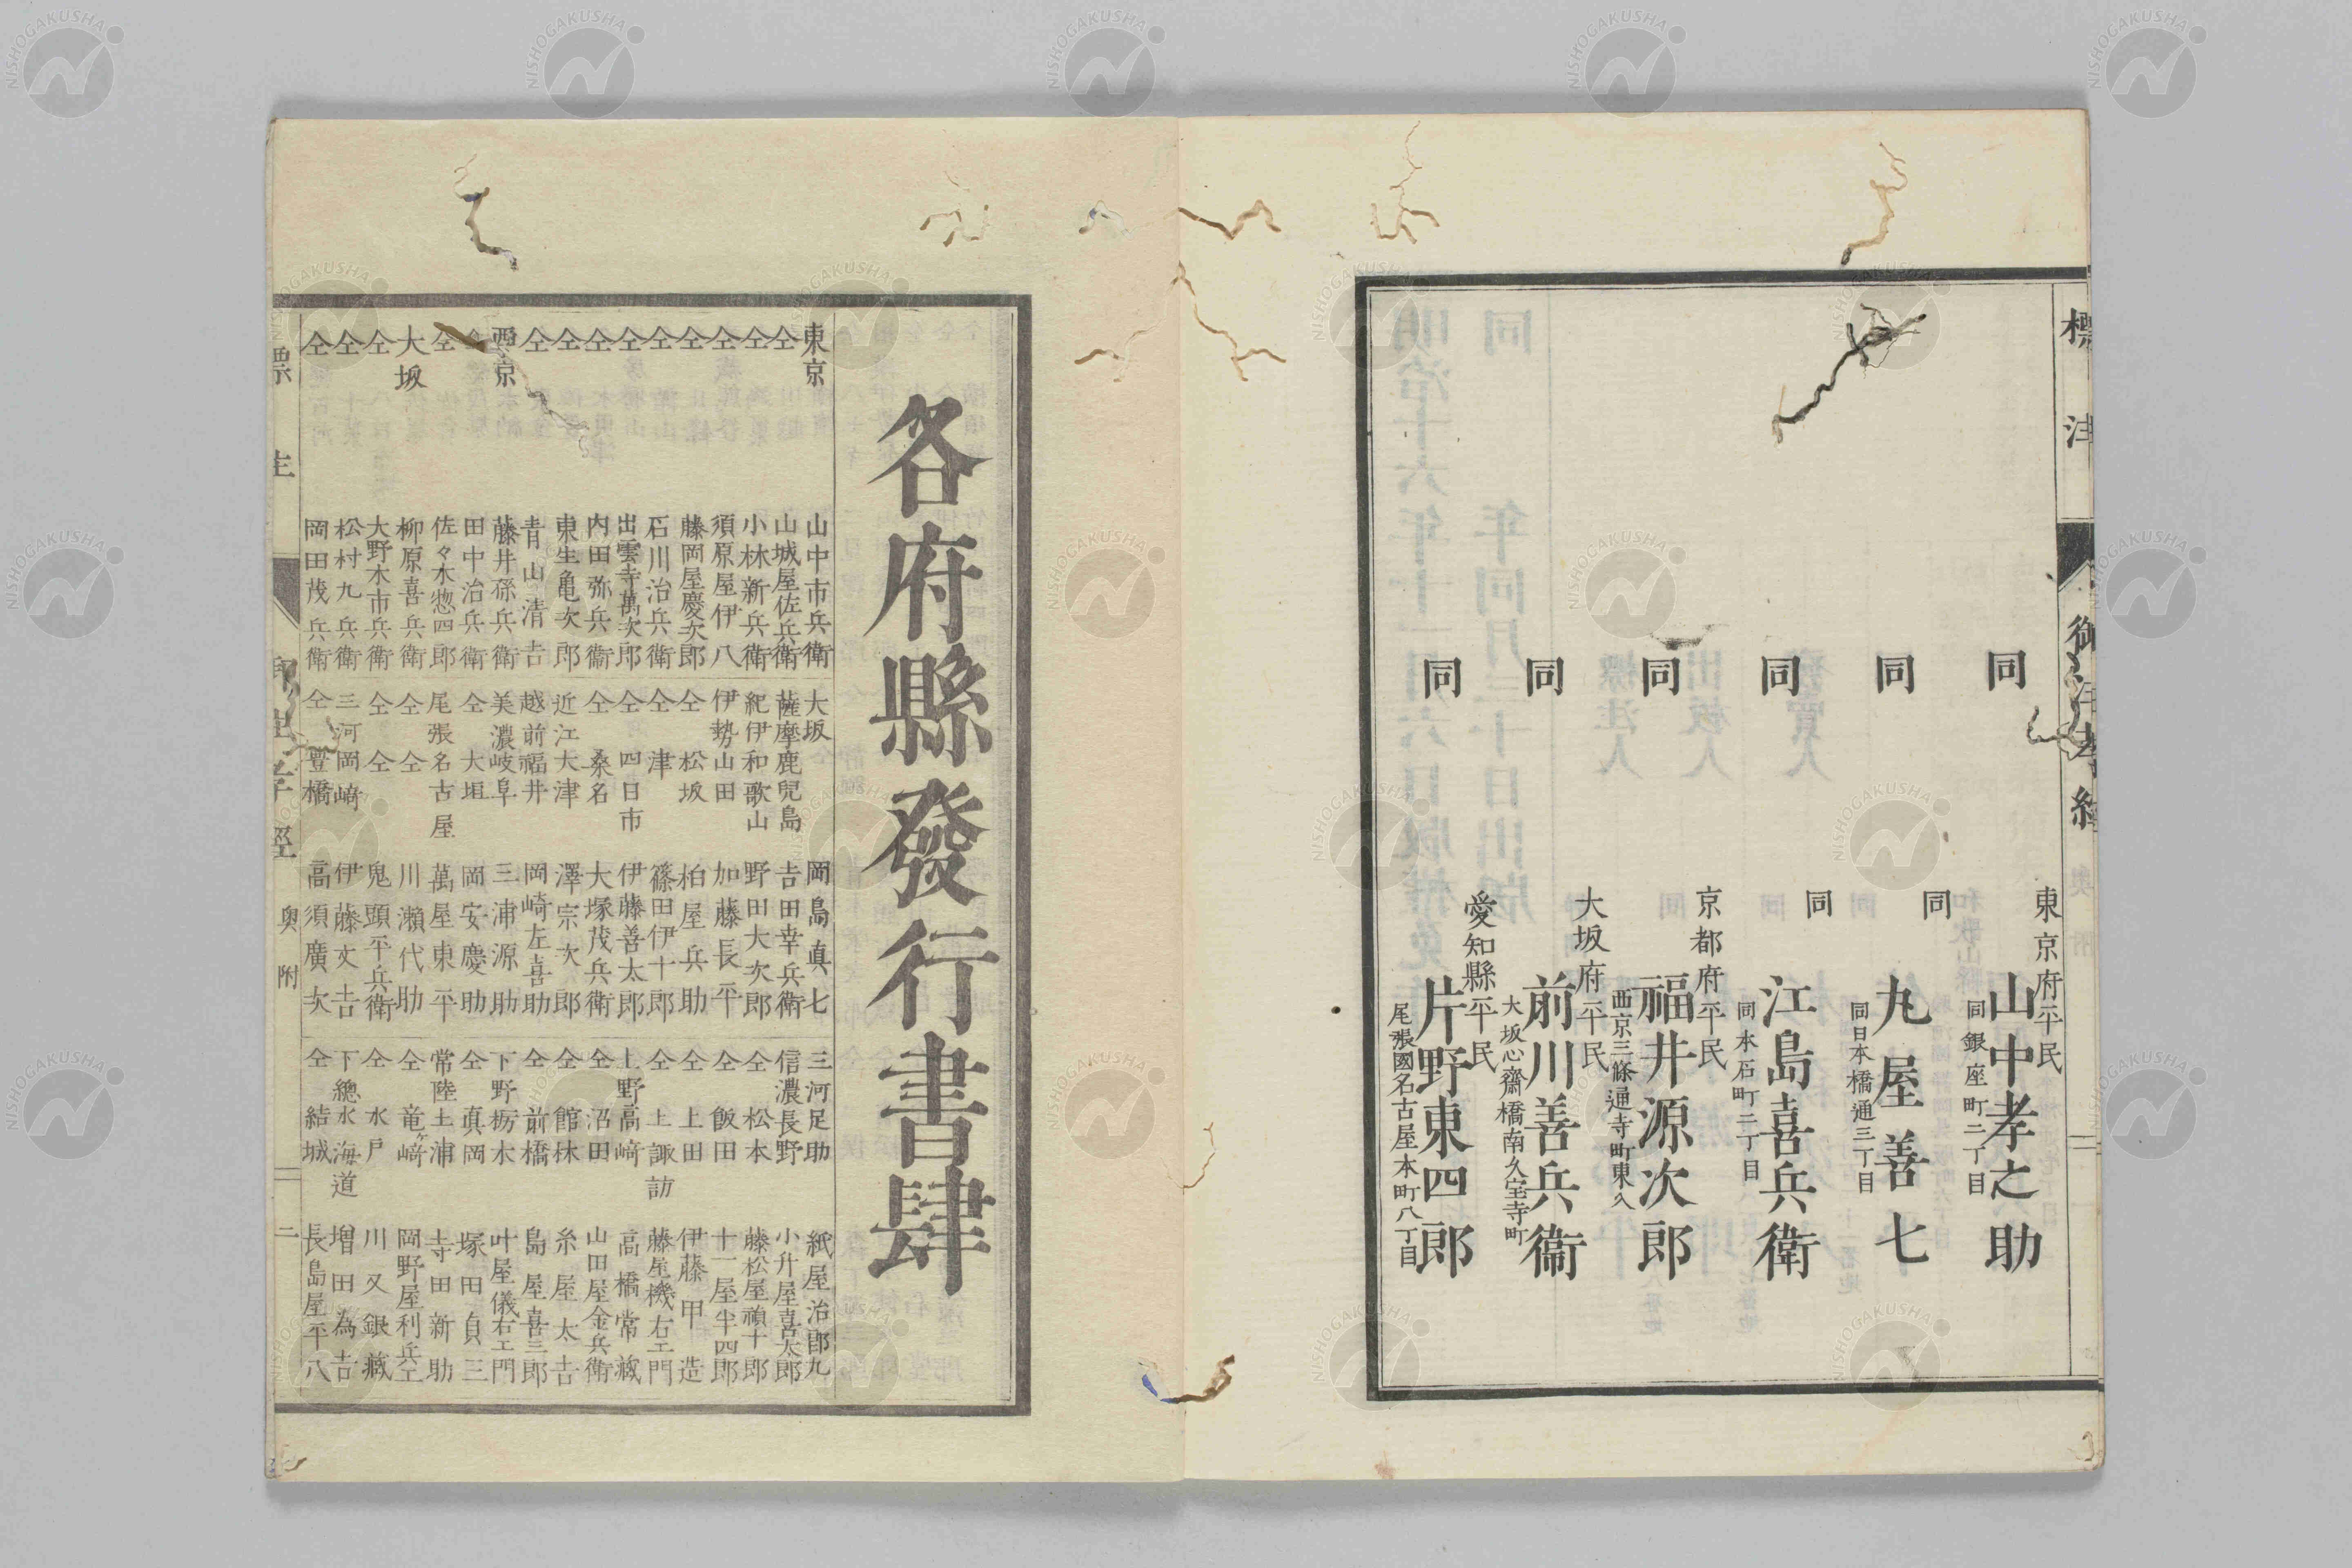 標注
御注孝經
同
東京府平民
山中孝之助
同銀座町二丁目
同
同
丸屋善七
同日本橋通三丁目
同
同
江島喜兵衛
同本石町二丁目
同
京都府平民
福井源次郎
西京三條通寺町東入
同
大坂府平民
前川善兵衛
大坂心齋橋南久宝寺町
同
愛知縣平民
片野東四郎
尾張國名古屋本町八丁目
各府縣發行書肆
東京 山中市兵衛
仝 山城屋佐兵衛
仝 小林新兵衛
仝 須原屋伊八
仝 藤岡屋慶次郎
仝 石川治兵衛
仝 出雲寺萬次郎
仝 内田弥兵衞
仝 東生亀次郎
仝 青山清吉
西京 藤井孫兵衛
仝 田中治兵衛
仝 佐々木惣四郎
大坂 柳原喜兵衛
仝 大野木市兵衛
仝 松村九兵衛
仝 岡田茂兵衛
大坂 岡島真七
薩摩鹿兒島 吉田幸兵衛
紀伊和歌山 野田大次郎
伊勢山田 加藤長平
仝 松坂 柏屋兵助
仝 津 篠田伊十郎
仝 四日市 伊藤善太郎
仝 桑名 大塚茂兵衛
近江大津 澤宗次郎
越前福井 岡崎左喜助
美濃岐阜 三浦源助
仝 大垣 岡安慶助
尾張名古屋 萬屋東平
仝 仝 川瀬代助
仝 仝 鬼頭平兵衛
三河岡崎 伊藤文吉
仝 豊橋 高須廣次
三河足助 紙屋治郎九
信濃長野 小升屋喜太郎
仝 松本 藤松屋禎十郎
仝 飯田 十一屋半四郎
仝 上田 伊藤甲造
仝 上諏訪 藤屋機右エ門
上野高崎 高橋常蔵
仝 沼田 山田屋金兵衛
仝 館林 糸屋太吉
仝 前橋 島屋喜三郎
下野栃木 叶屋儀右エ門
仝 真岡 塚田貞三
常陸土浦 寺田新助
仝 竜ヶ崎 岡野屋利兵工
仝 水戸 川又銀蔵
下總水海道 増田為吉
仝 結城 長島屋平八
奥附
二
NISHOGAKUSHA